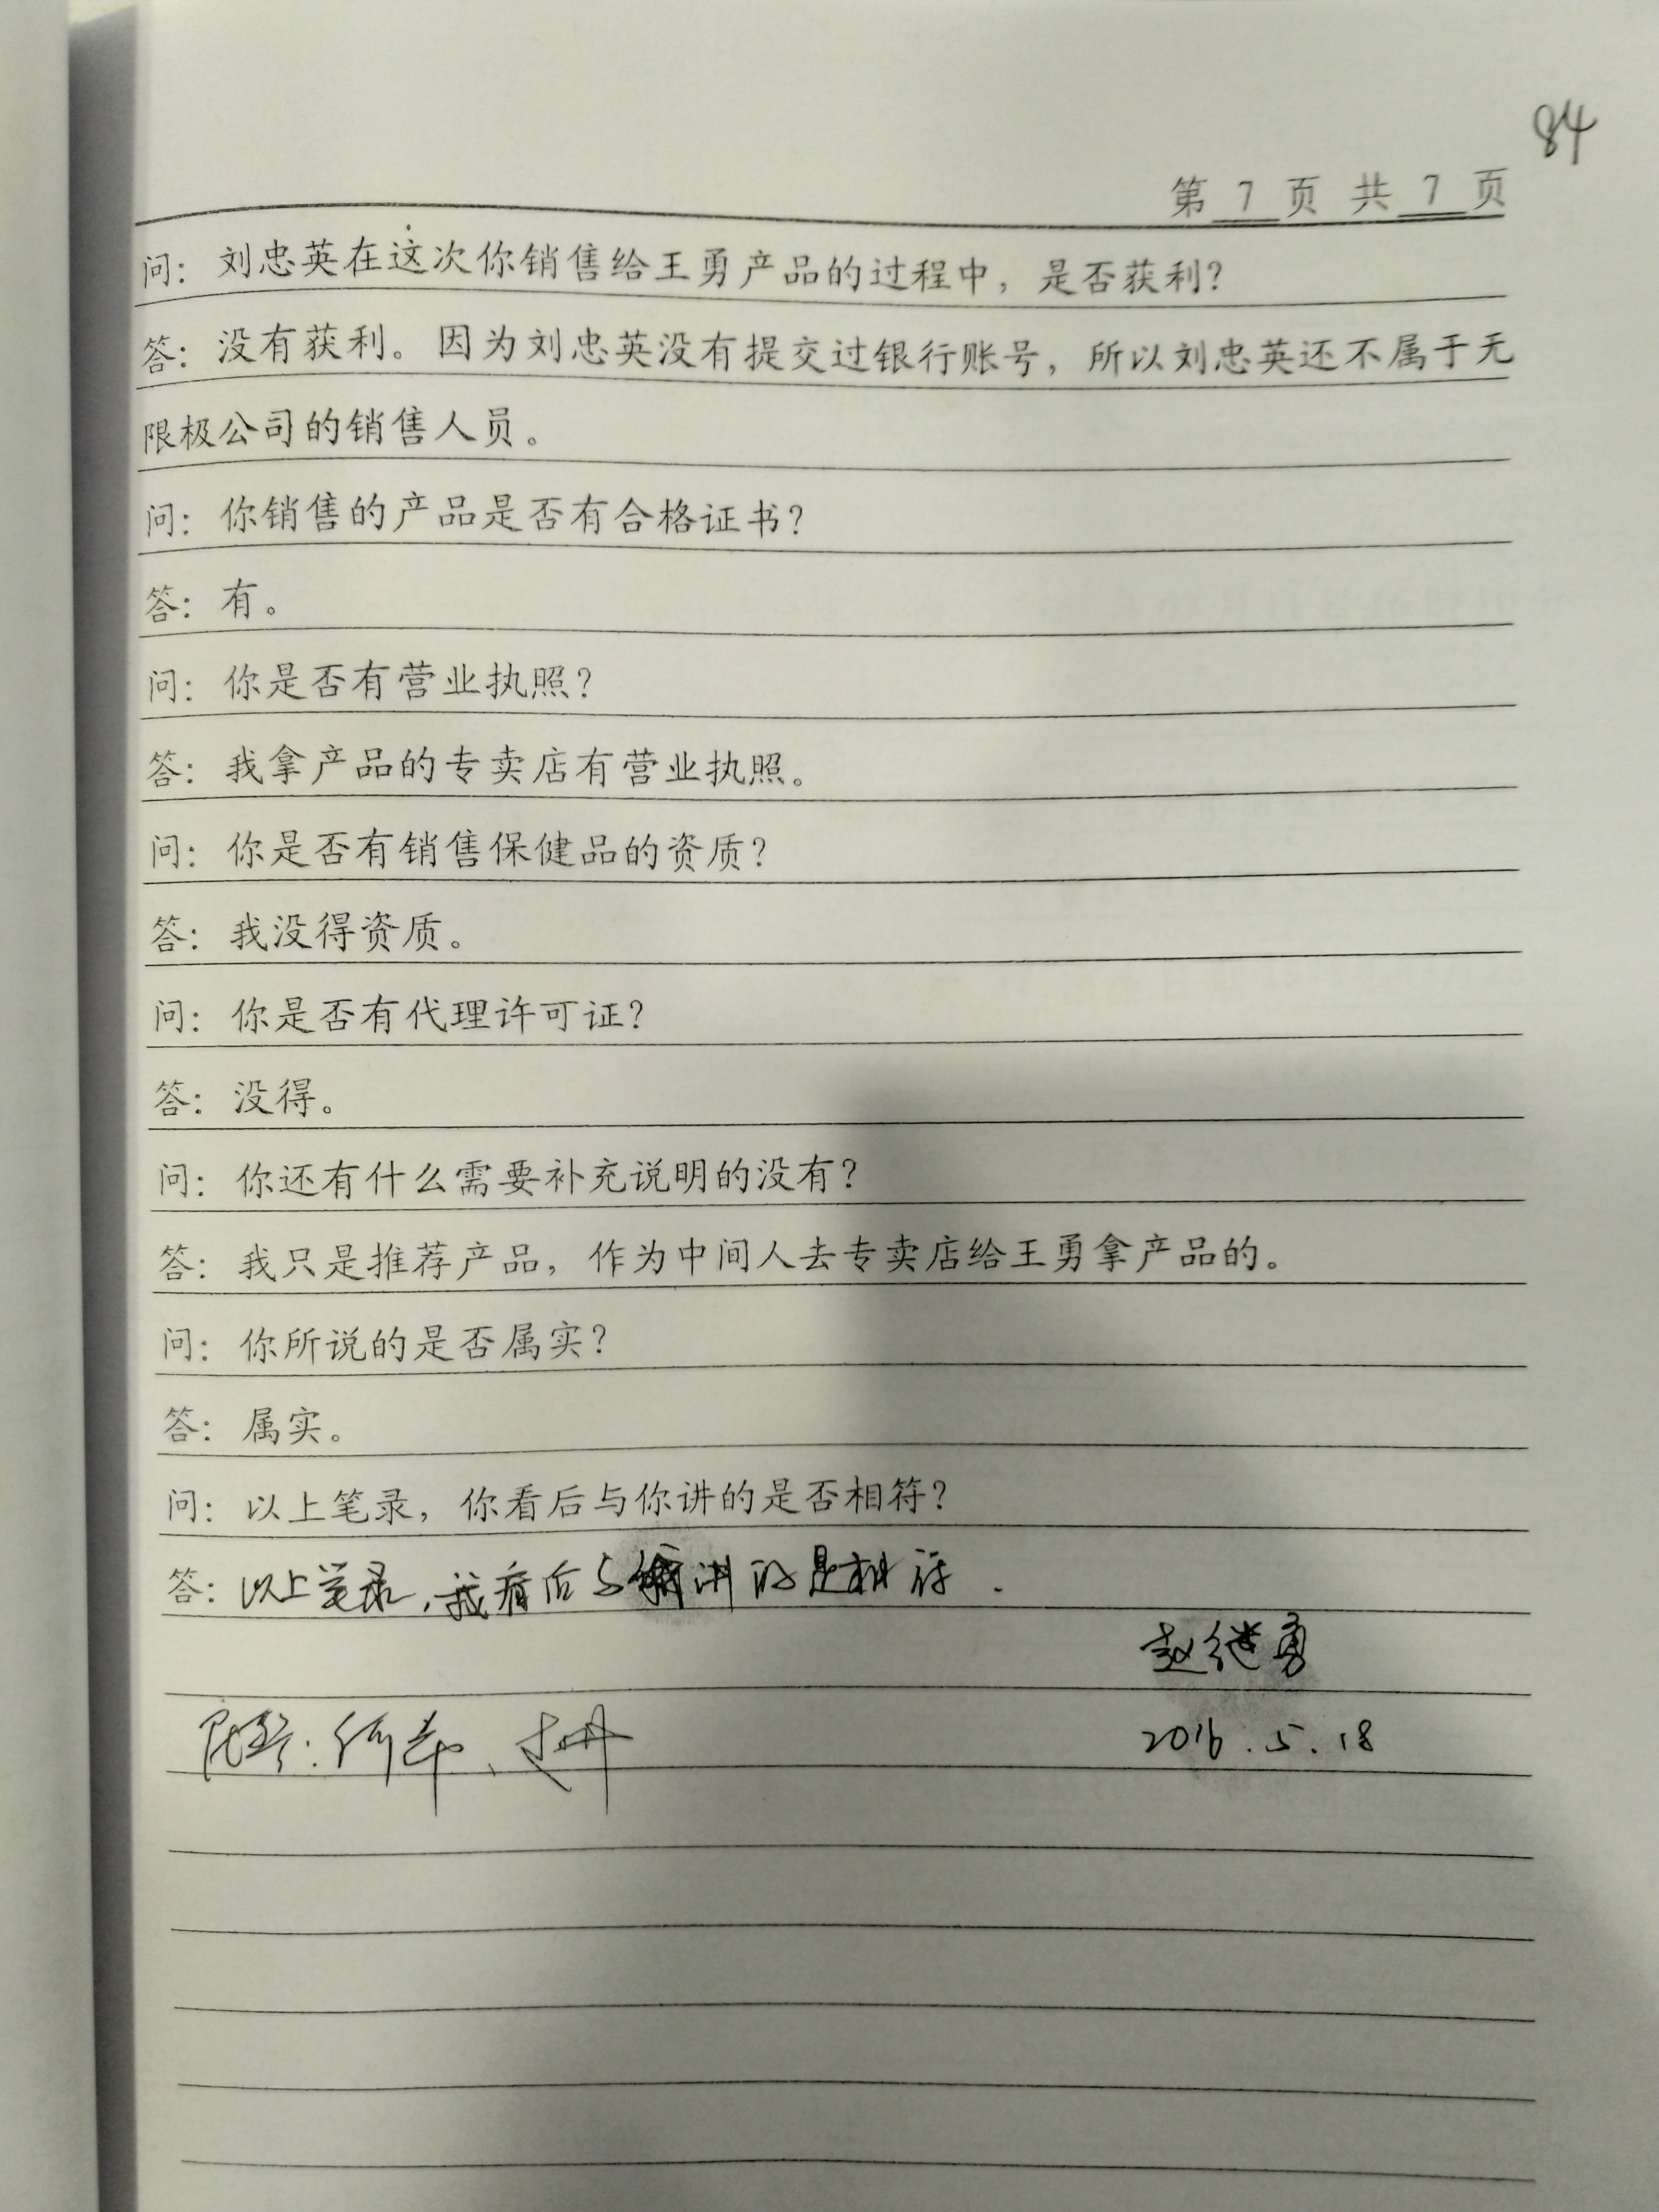 84
第 7 页 共 7 页
问：刘忠英在这次你销售给王勇产品的过程中，是否获利？
答：没有获利。因为刘忠英没有提交过银行账号，所以刘忠英还不属于无
限极公司的销售人员。
问：你销售的产品是否有合格证书？
答：有。
问：你是否有营业执照？
答：我拿产品的专卖店有营业执照。
问：你是否有销售保健品的资质？
答：我没得资质。
问：你是否有代理许可证？
答：没得。
问：你还有什么需要补充说明的没有？
答：我只是推荐产品，作为中间人去专卖店给王勇拿产品的。
问：你所说的是否属实？
答：属实。
问：以上笔录，你看后与你讲的是否相符？
答：以上笔录，我看后与我讲的是相符.
赵继勇
2016.5.18